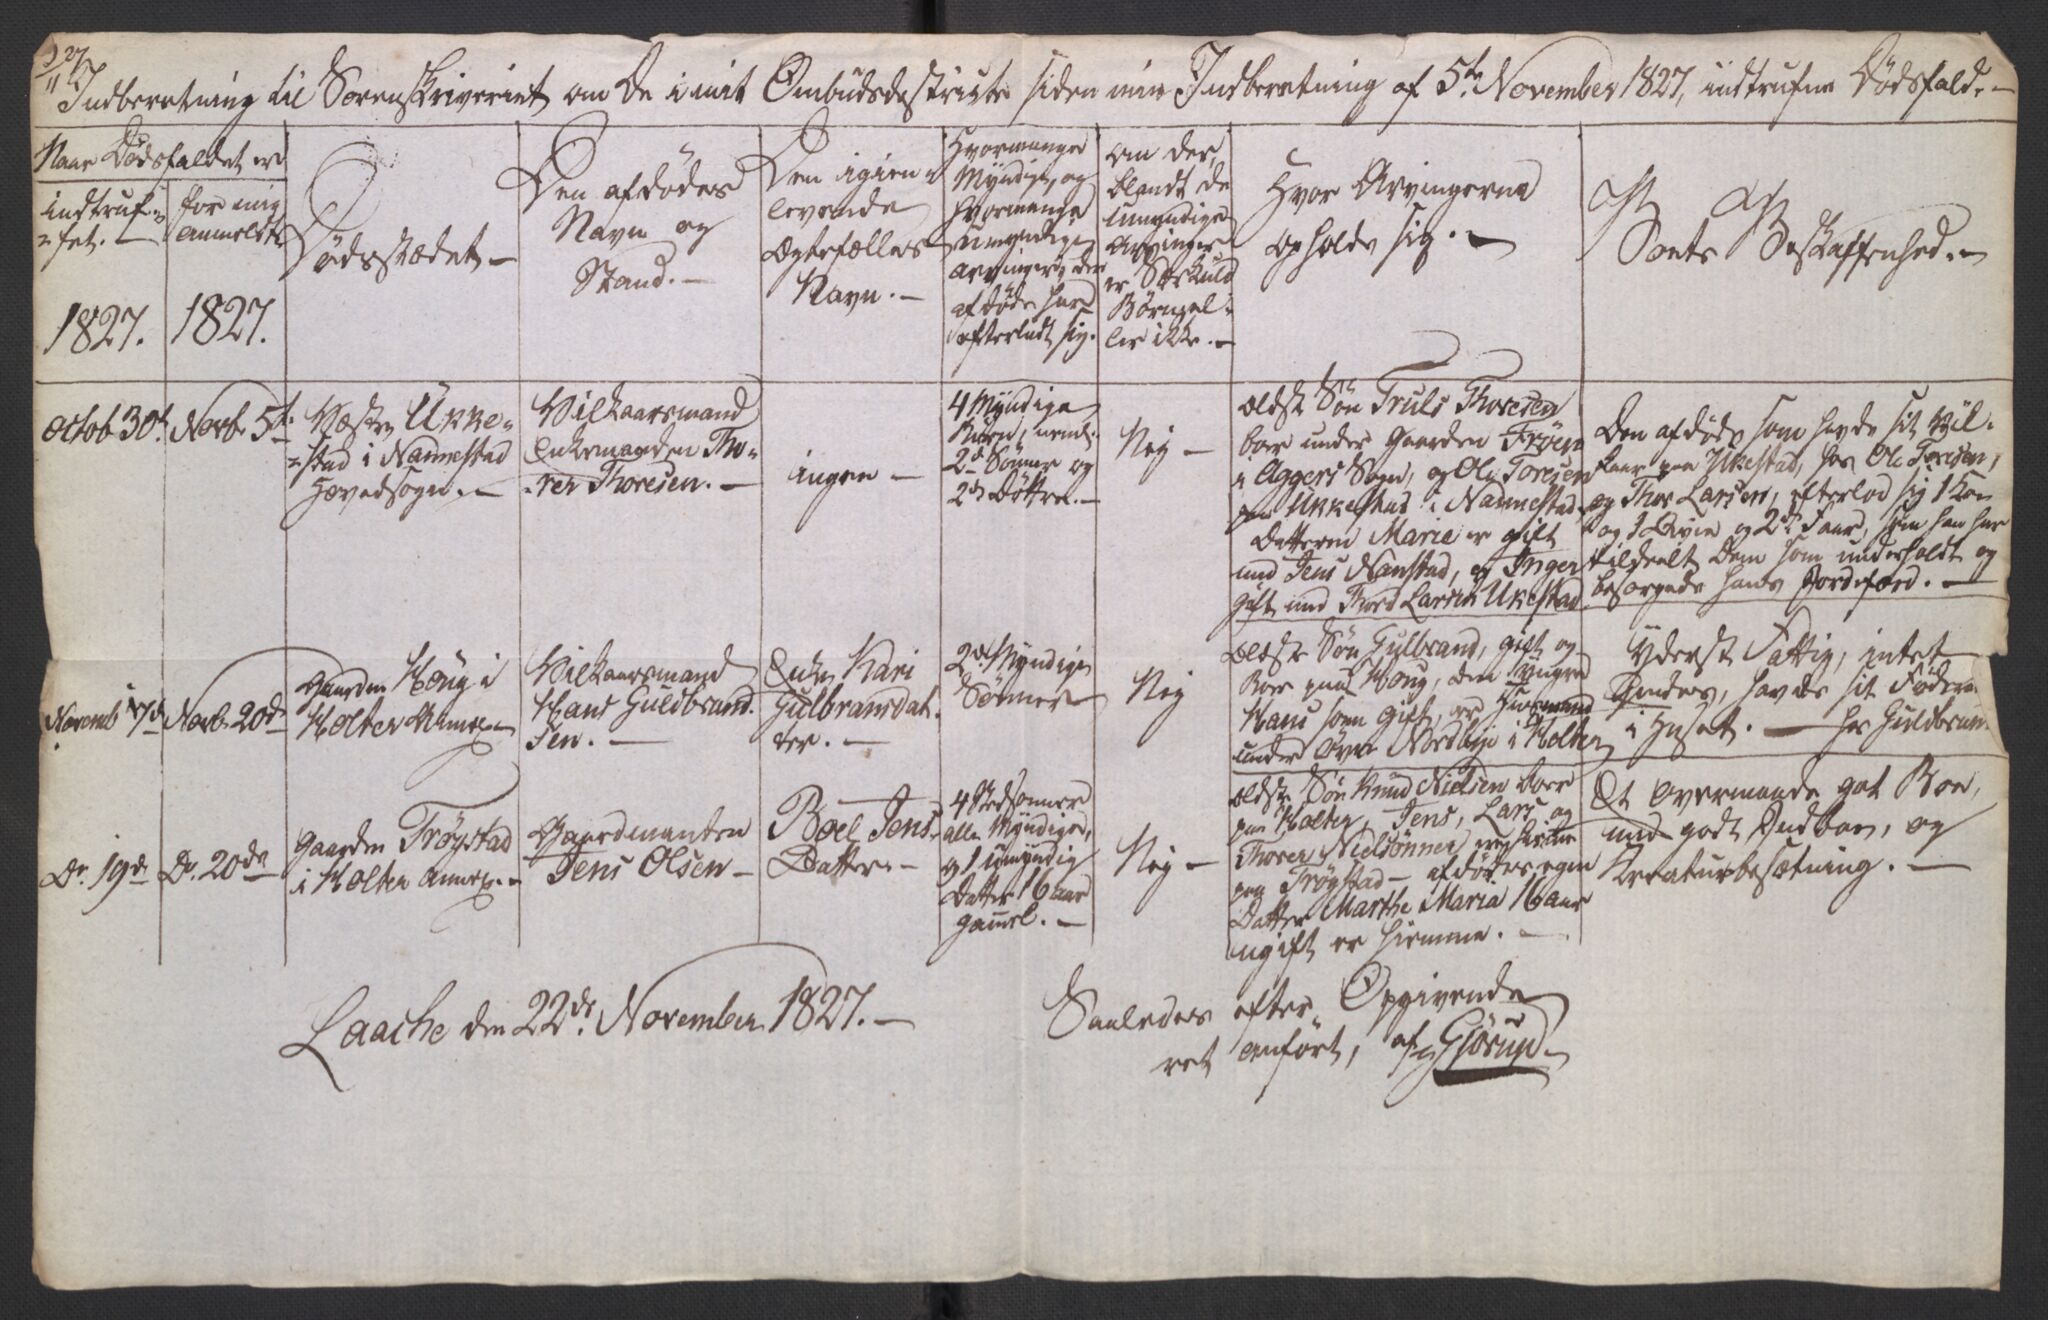 27/11 27
Indberetning til Sorenskriveriet om De i mit Ombudsdestricte siden min Indberetning af 5te November 1827, indtrufne Dödsfald. –
Naar Dödsfaldet er
indtruf-
fet. –
1827.
for mig
anmeldt
1827.
Dödsstædet –
Den afdödes
Navn og
Stand. –
Den igien-
levende
Ægtefælles
Navn. –
Hvormange
Myndige, og
hvormange
umyndige
arvinger den
afdöde har
efterladt sig.
om der,
blandt de
umyndige
Arvinger
er Sködskuld
Börn, el-
ler ikke. –
Hvor Arvingerne
opholde sig. –
Boets Beskaffenhed. –
Octob 30te
Novb. 5te
Væstre Ükke-
stad i Nannestad
Hovedsogn. –
Vilkaarsmand
Enkemanden Tho-
rer Thoresen. –
ingen –
4 Myndige
Börn, neml:
2de Sönner og
2de Döttre. –
Nej –
ældste Sön Truls Thoresen
boer under Gaarden Fröen
i Aggers Sogn, og Ole Toresen
paa Ukkestad i Nannestad,
Datteren Marie er gift
med Jens Nanstad, og Inger
gift med Thord Larsen Ukestad
Den afdöde som havde sit Vil-
kaar paa Ukestad, hos Ole Toresen,
og Thor Larsen, efterlod sig 1 Koe
og 1 Qvie og 2de Faar, som han har
tildeelt Dem som underholdt og
besörgede hans Jordefærd. –
Novemb 17de
Novb. 20de
Gaarden Höug i
Holter Annex –
Vilkaarsmand
Hans Guldbrand-
sen. –
Enke Kari
Gulbransdat-
ter. –
2de Myndige
Sönner
Nej
Ældste Sön Gulbrand, gift og
Boer paa Höug, den yngre
Hans som gift, er Huusmand
under övre Nordbye i Holter
Yderst Fattig, intet
Endes, havde sit Föde
i Huset. – hos Guldbran
Do 19de
Do. 20de
Gaarden Tröystad
i Holter Annex. –
Gaardmanden
Jens Olsen –
Boel Jens-
Datter –
4 Stedsönner
alle Myndige,
og 1 umyndig
Datter 16 aar
gammel. –
Nej –
ældste Sön Knud Nielsen boer
paa Holter, Jens, Lars og
Thorer Nielsönner
paa Tröystad – afdödes egen
Datter Marthe Maria 16 aar
ugift er hiemme. –
Et overmaade got Boe,
med godt Indboe, og
Kreaturbesætning. –
Laache den 22de November 1827. –
Saaledes efter Opgivende
ret anfört, af Gjörud